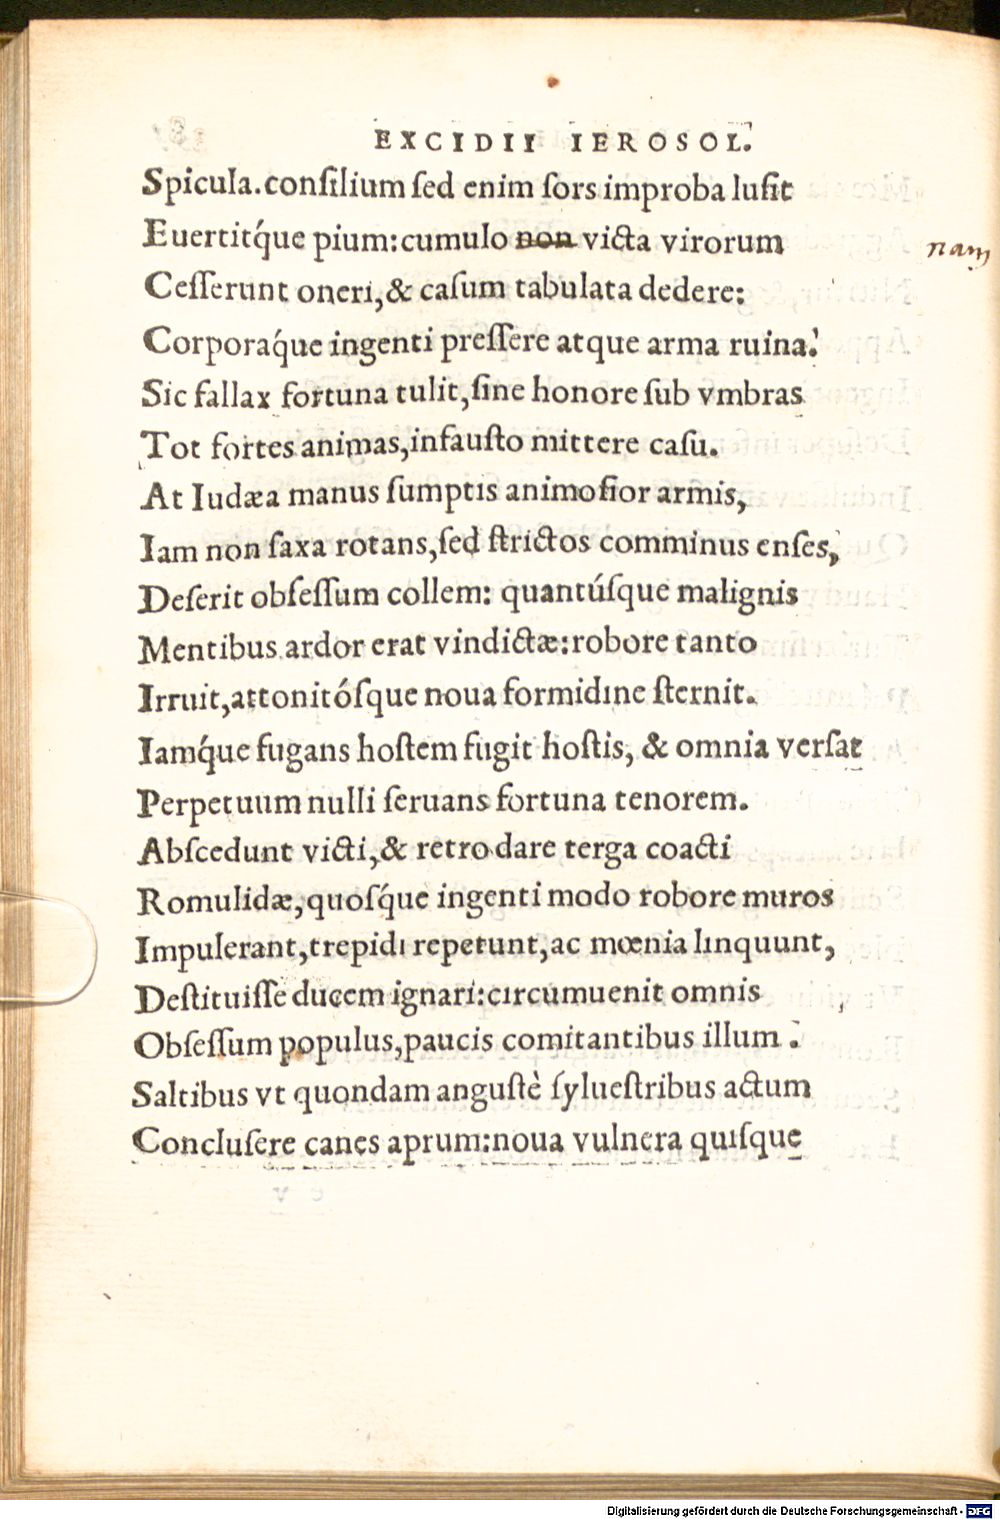 EXCIDII IEROSOL.
Spicula.conſilium ſed enim ſors improba luſit
Euertitq́ue pium:cumulo non victa virorum nam
Ceſſerunt oneri,& caſum tabulata dedere:
Corporaq́ue ingenti preſſere atque arma ruina.
Sic fallax fortuna tulit,ſine honore ſub vmbras
Tot fortes animas,infauſto mittere caſu.
At Iudæa manus ſumptis animoſior armis,
Iam non ſaxa rotans,ſed ſtrictos comminus enſes,
Deſerit obſeſſum collem: quantúſque malignis
Mentibus ardor erat vindictæ:robore tanto
Irruit,attonitóſque noua formidine ſternit.
Iamq́ue fugans hoſtem fugit hoſtis, & omnia verſat
Perpetuum nulli ſeruans fortuna tenorem.
Abſcedunt victi,& retro dare terga coacti
Romulidæ,quoſq́ue ingenti modo robore muros
Impulerant,trepidi repetunt,ac mœnia linquunt,
Deſtituiſſe ducem ignari:circumuenit omnis
Obſeſſum populus,paucis comitantibus illum.
Saltibus vt quondam anguſtè ſylueſtribus actum
Concluſere canes aprum:noua vulnera quiſque
Digitalisierung gefördert durch die Deutsche Forschungsgemeinschaft - DFG